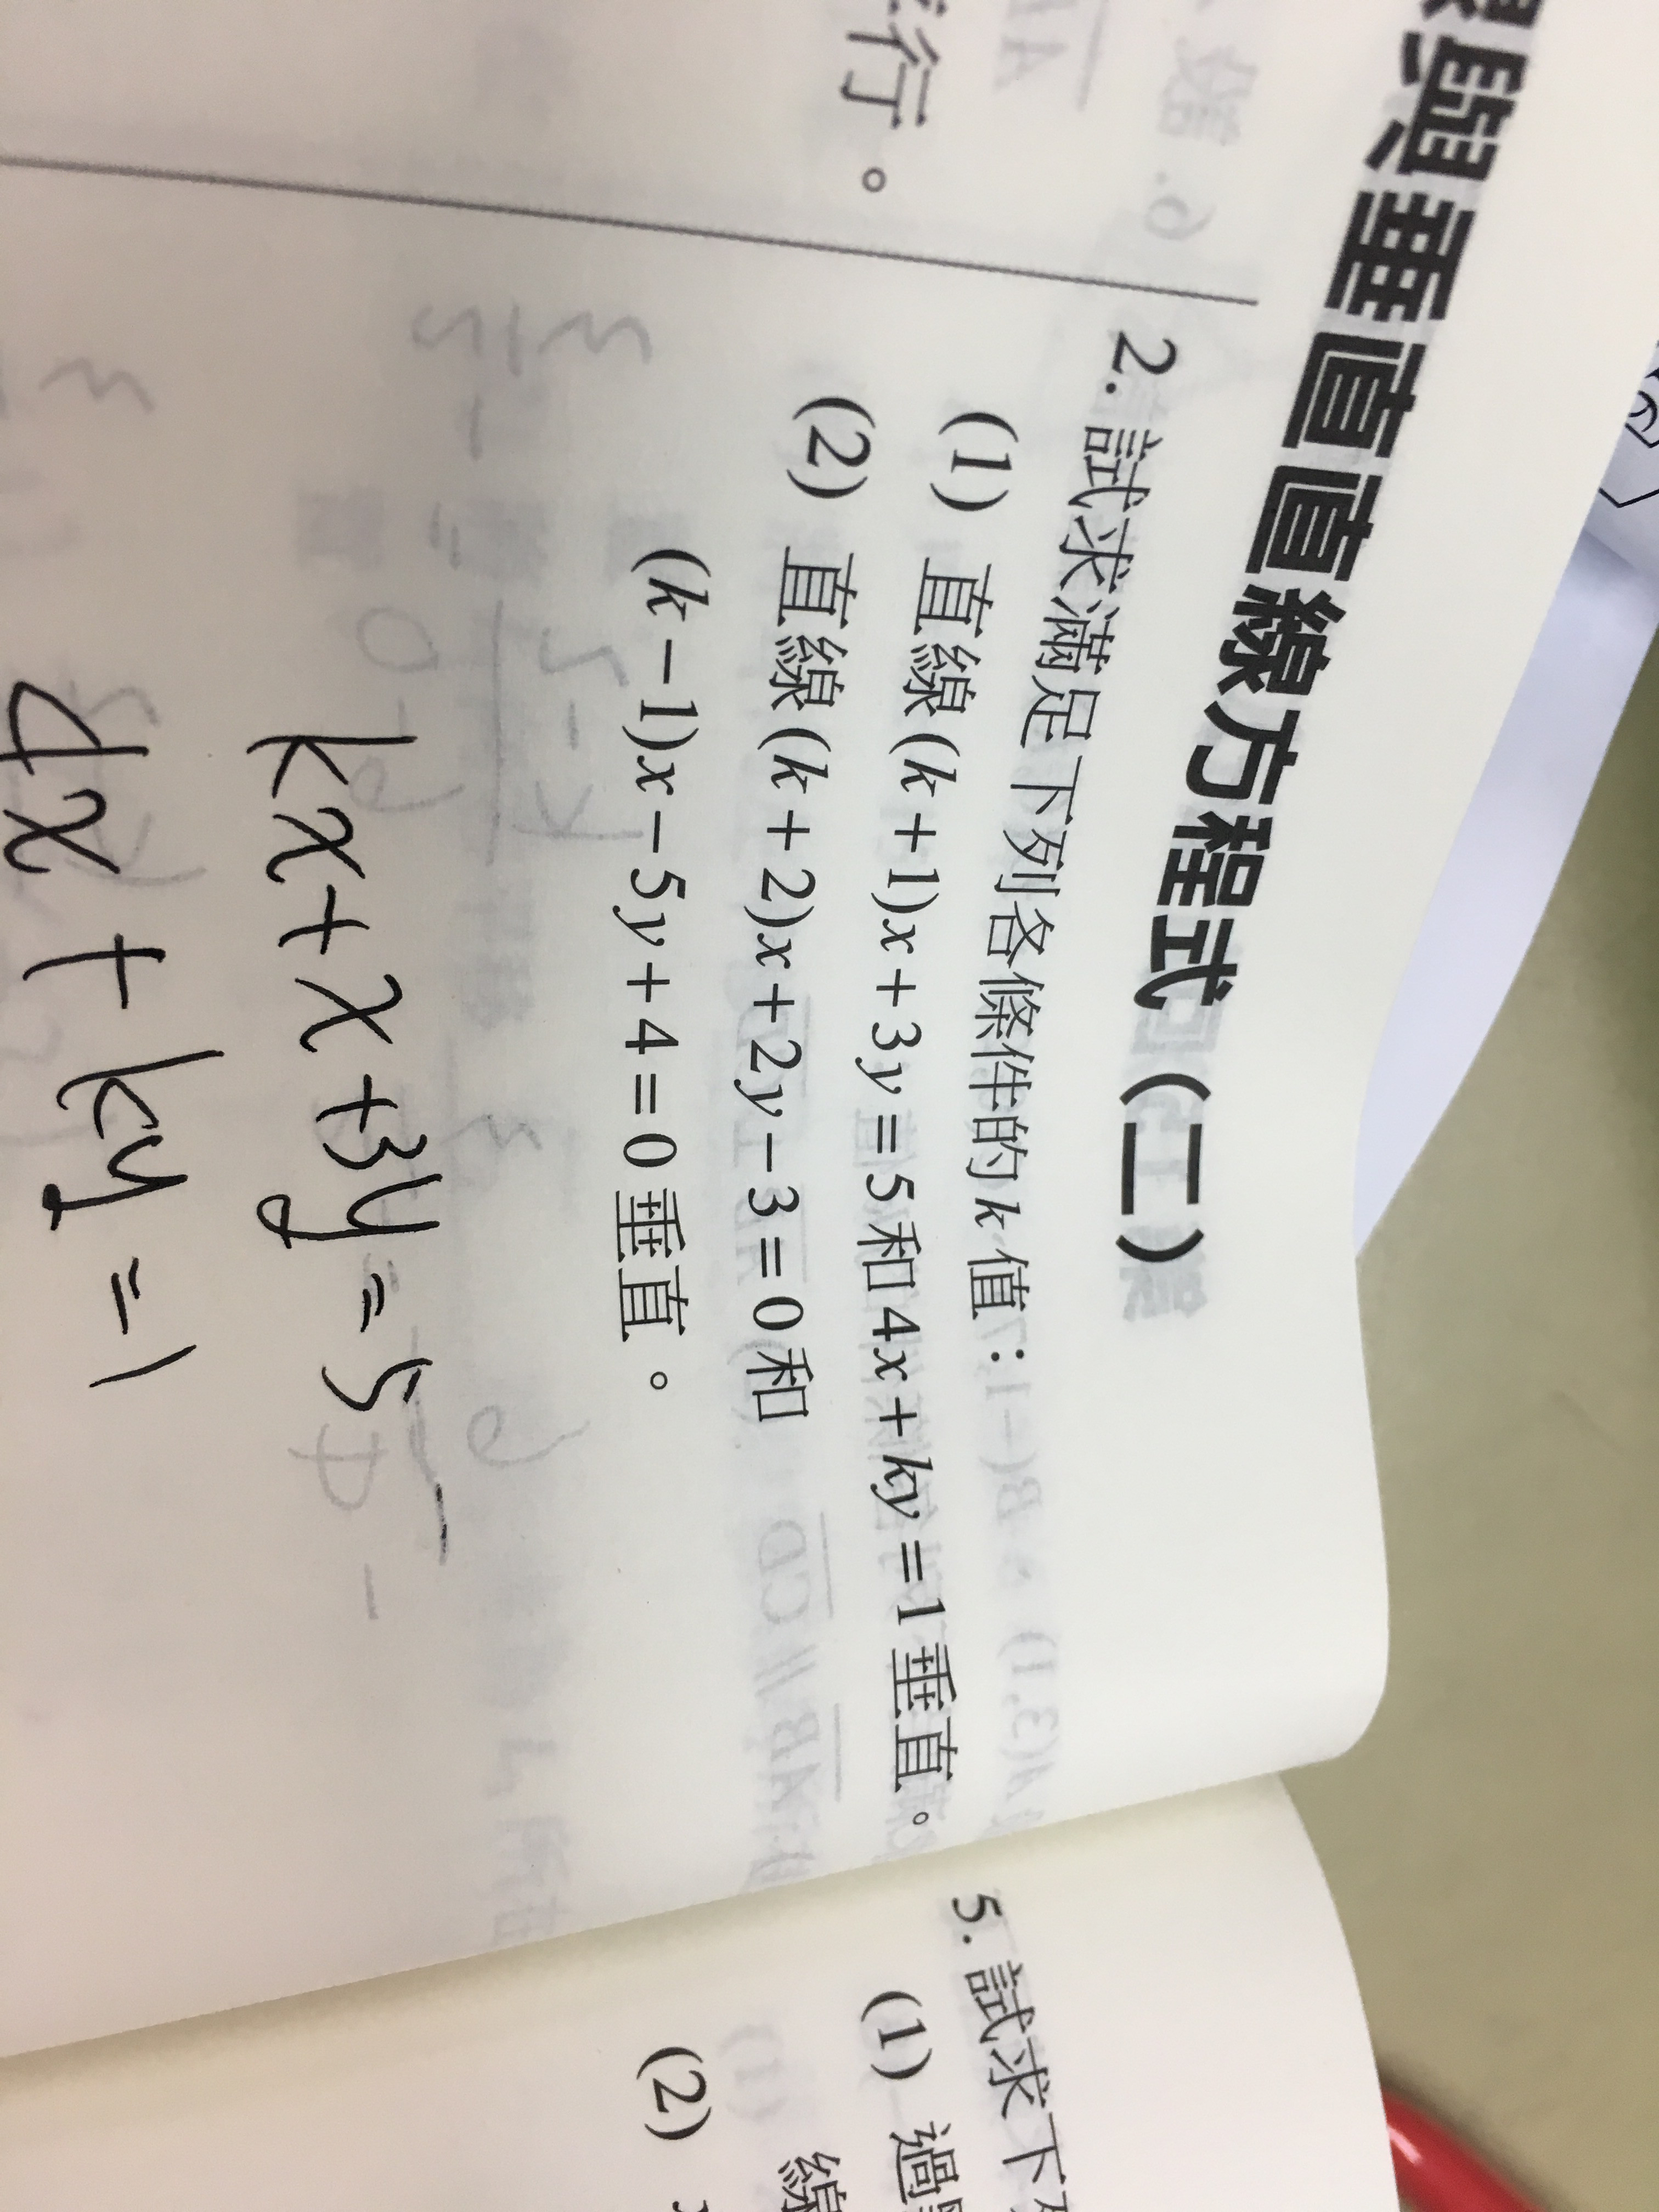 與垂直直線方程式(二)
行。
2. 試求滿足下列各條件的 k 值:
(1) 直線(k+1)x+3y=5和4x+ky=1垂直。
(2) 直線(k+2)x+2y-3=0和
(k-1)x-5y+4=0垂直。
kx+x+3y=5
4x+ky=1
5. 試求下
(1) 過
線
(2)